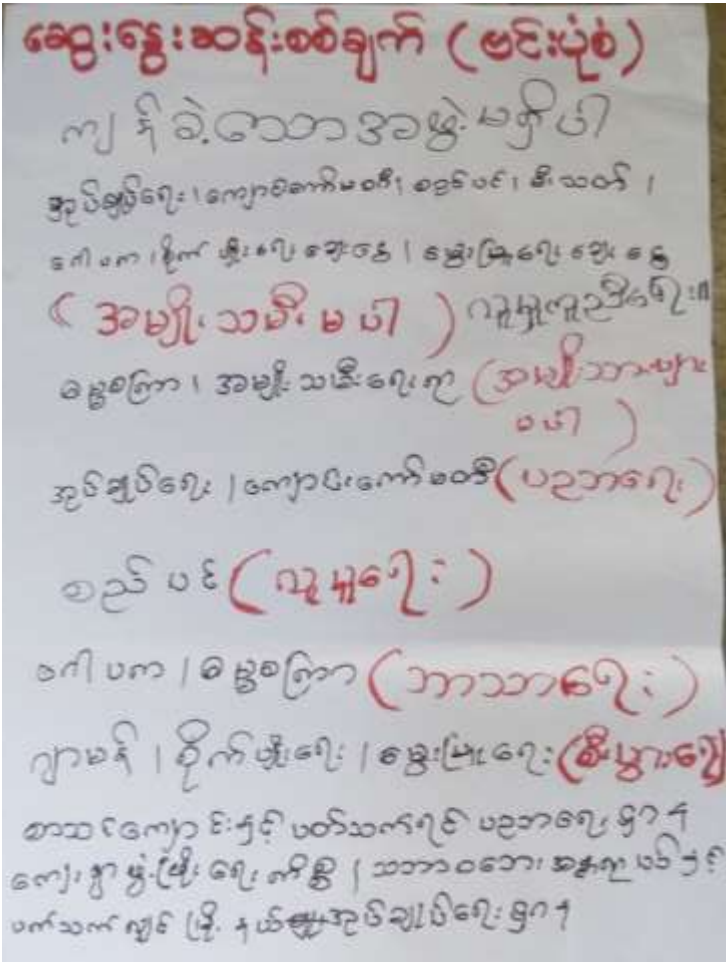 ဆွေးနွေးဆန်းစစ်ချက် (ဗင်းပုံစံ)
ကျန်ခဲ့သောအဖွဲ့မရှိပါ
အုပ်ချုပ်ရေး၊ ကျောင်းကော်မတီ၊ စည်ပင်၊ မီးသတ်၊
ဂေါပက၊ စိုက်ပျိုးရေးချေးငွေ၊ မွေးမြူရေးချေးငွေ
(အမျိုးသမီးမပါ) လူမှုကူညီရေး။
ဓမ္မစကြာ၊ အမျိုးသမီးရေးရာ (အမျိုးသားများ
မပါ)
အုပ်ချုပ်ရေး၊ ကျောင်းကော်မတီ (ပညာရေး)
စည်ပင် (လူမှုရေး)
ဂေါပက၊ ဓမ္မစကြာ (ဘာသာရေး)
ဂျာမန်၊ စိုက်ပျိုးရေး၊ မွေးမြူရေး (စီးပွားရေး)
စာသင်ကျောင်းနှင့် ပတ်သက်ရင် ပညာရေးဌာန
ကျေးရွာဖွံ့ဖြိုးရေးကိစ္စ၊ သဘာဝဘေးအန္တရာယ်နှင့်
ပတ်သက်လျှင် မြို့နယ်အုပ်ချုပ်ရေးဌာန